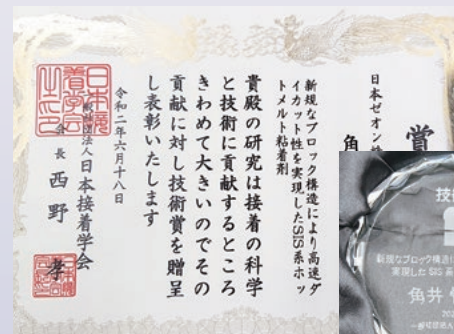 賞
日本ゼオン
角
新規なブロック構造により高速ダ
イカット性を実現したSIS系ホッ
トメルト粘着剤
貴殿の研究は接着の科学
と技術に貢献するところ
きわめて大きいのでその
貢献に対し技術賞を贈呈
し表彰いたします
令和二年六月十八日
一般社団法人日本接着学会
会長 西野 孝
日本接
着学会
之印
技
新規なブロック構造に
実現した SIS 系
角井
202
一般社団法人